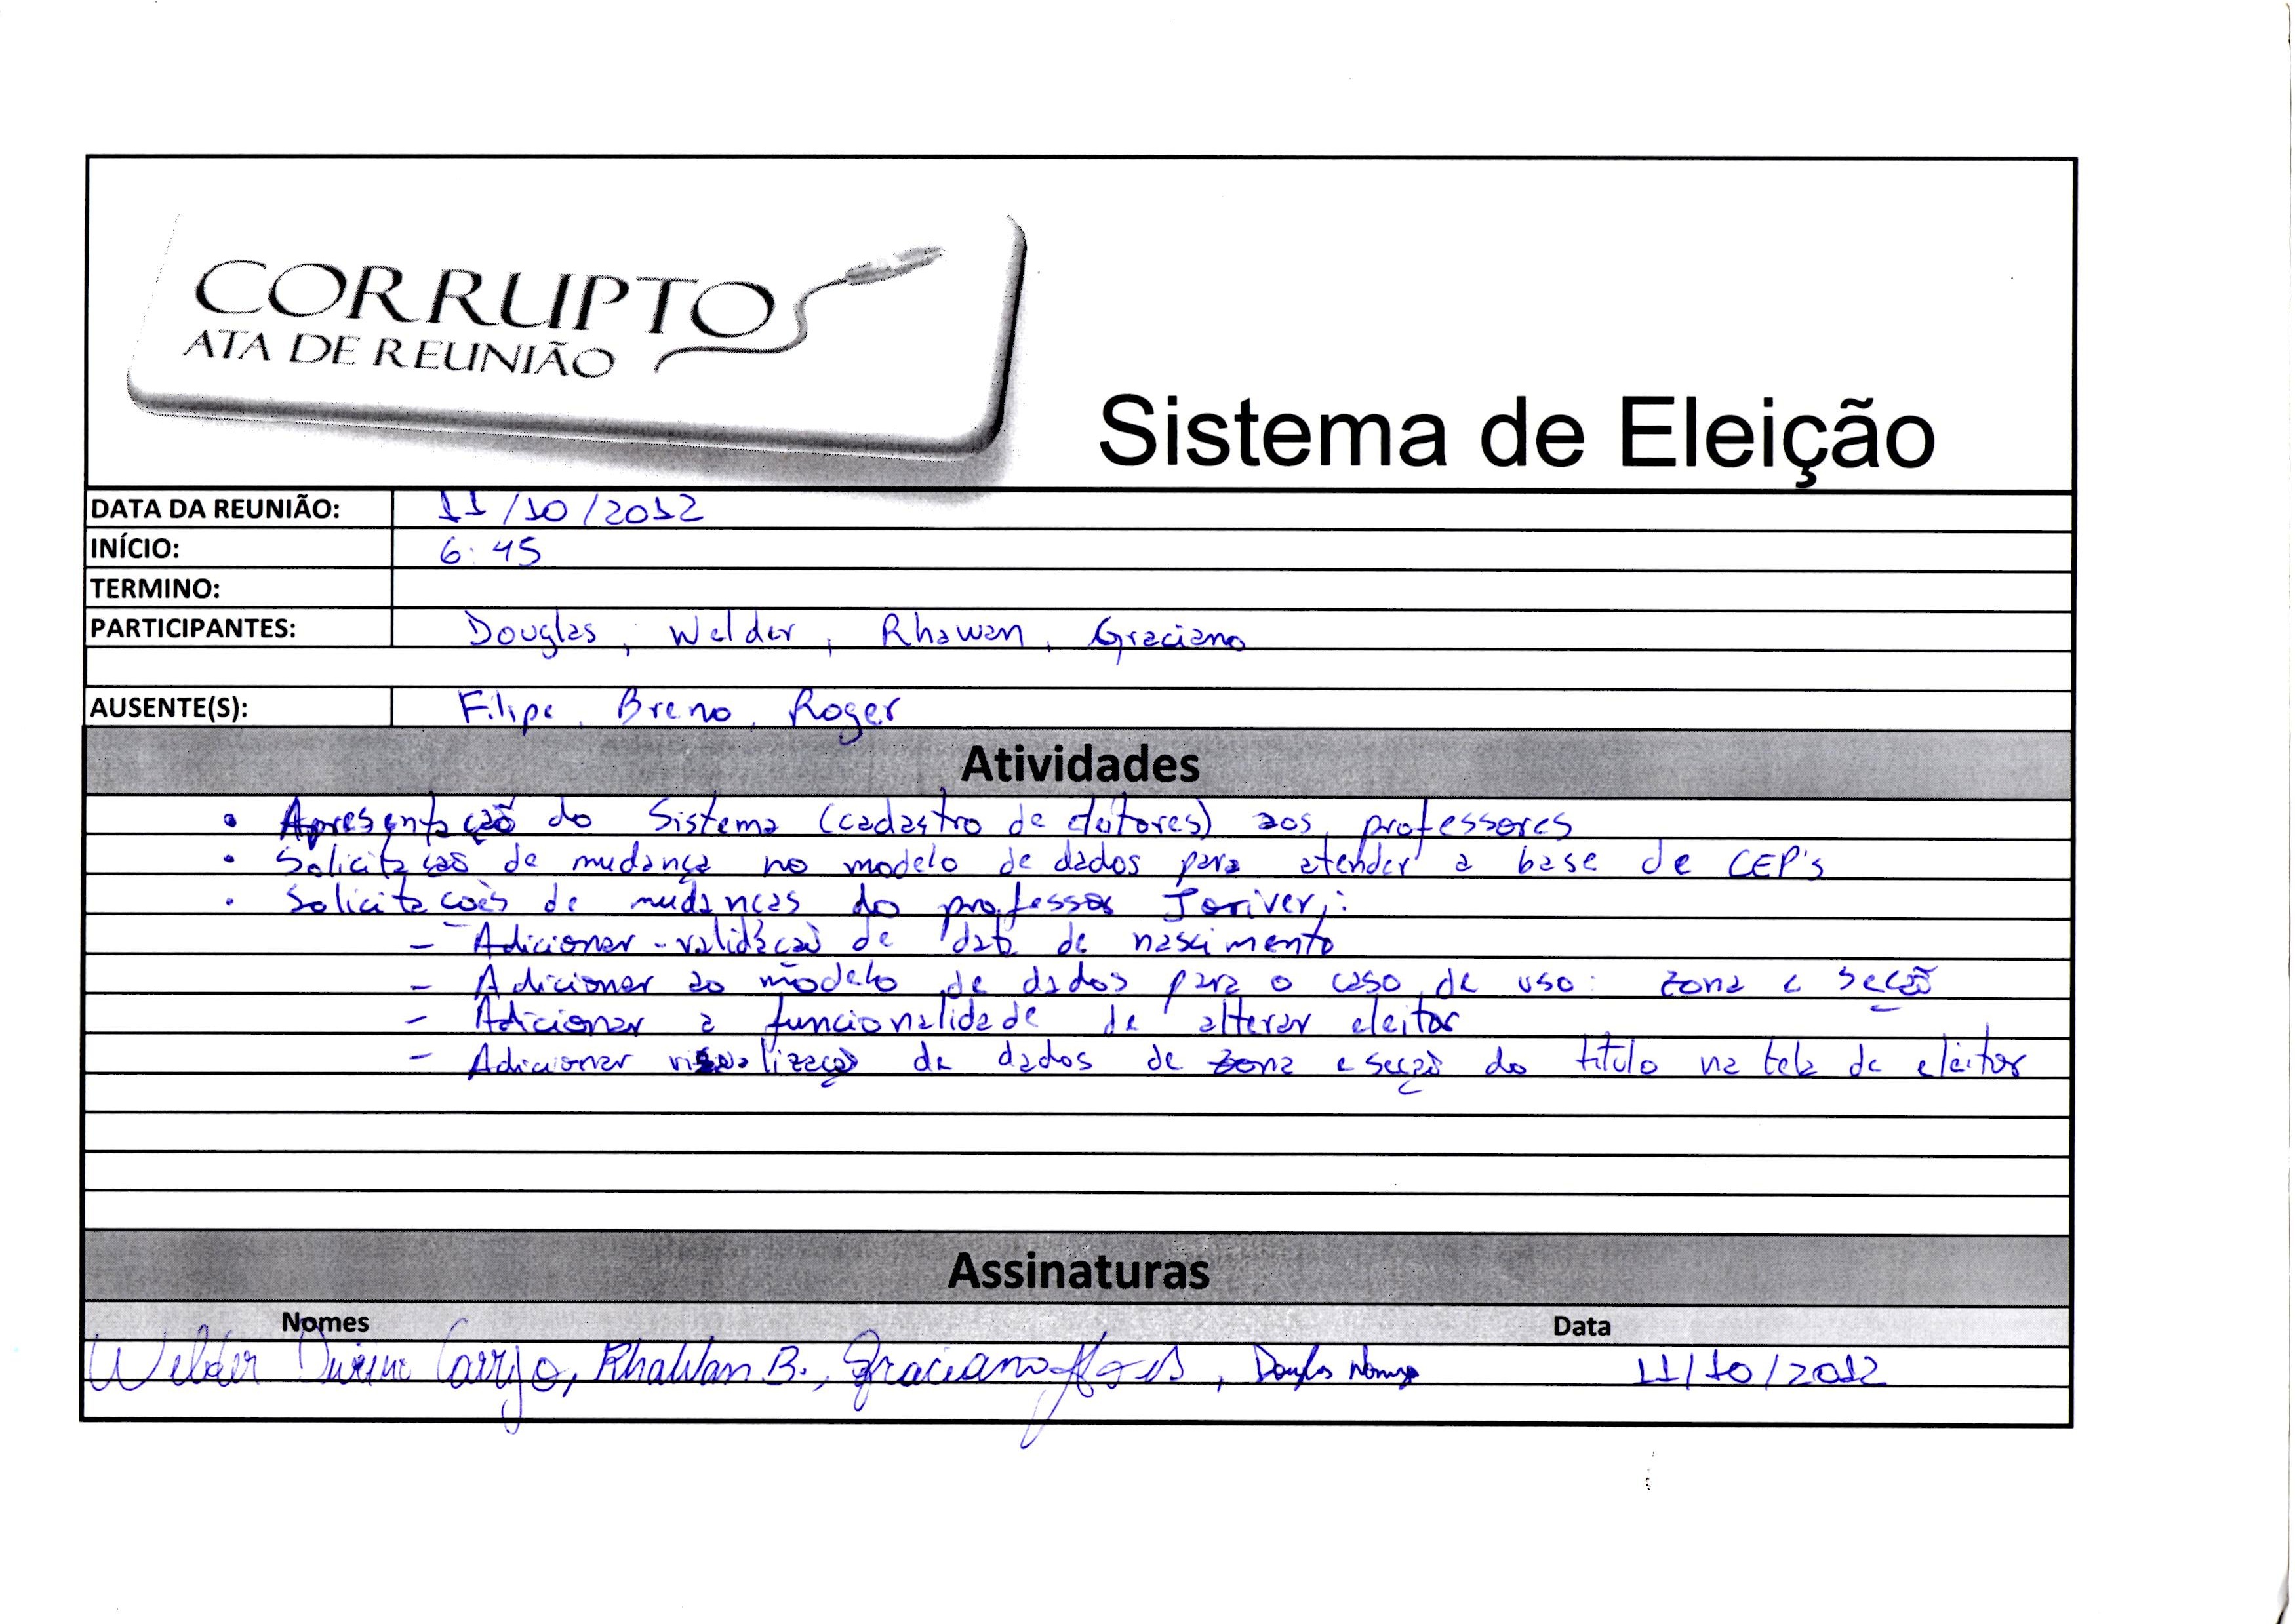 CORRUPTO
ATA DE REUNIÃO
Sistema de Eleição
DATA DA REUNIÃO: 11/10/2012
INÍCIO: 6:45
TERMINO:
PARTICIPANTES: Douglas, Welder, Rhawan, Graciano
AUSENTE(S): Filipe, Breno, Roger
Atividades
• Apresentação do Sistema (cadastro de eleitores) aos professores
• Solicitação de mudança no modelo de dados para atender a base de CEP's
• Solicitações de mudanças do professor Joriver:
- Adicionar validação de data de nascimento
- Adicionar ao modelo de dados para o caso de uso: zona e seção
- Adicionar a funcionalidade de alterar eleitor
- Adicionar visualização de dados de zona e seção do título na tela de eleitor
Assinaturas
Nomes Data
Welder Carrijo, Rhawan B., Graciano, Douglas 11/10/2012